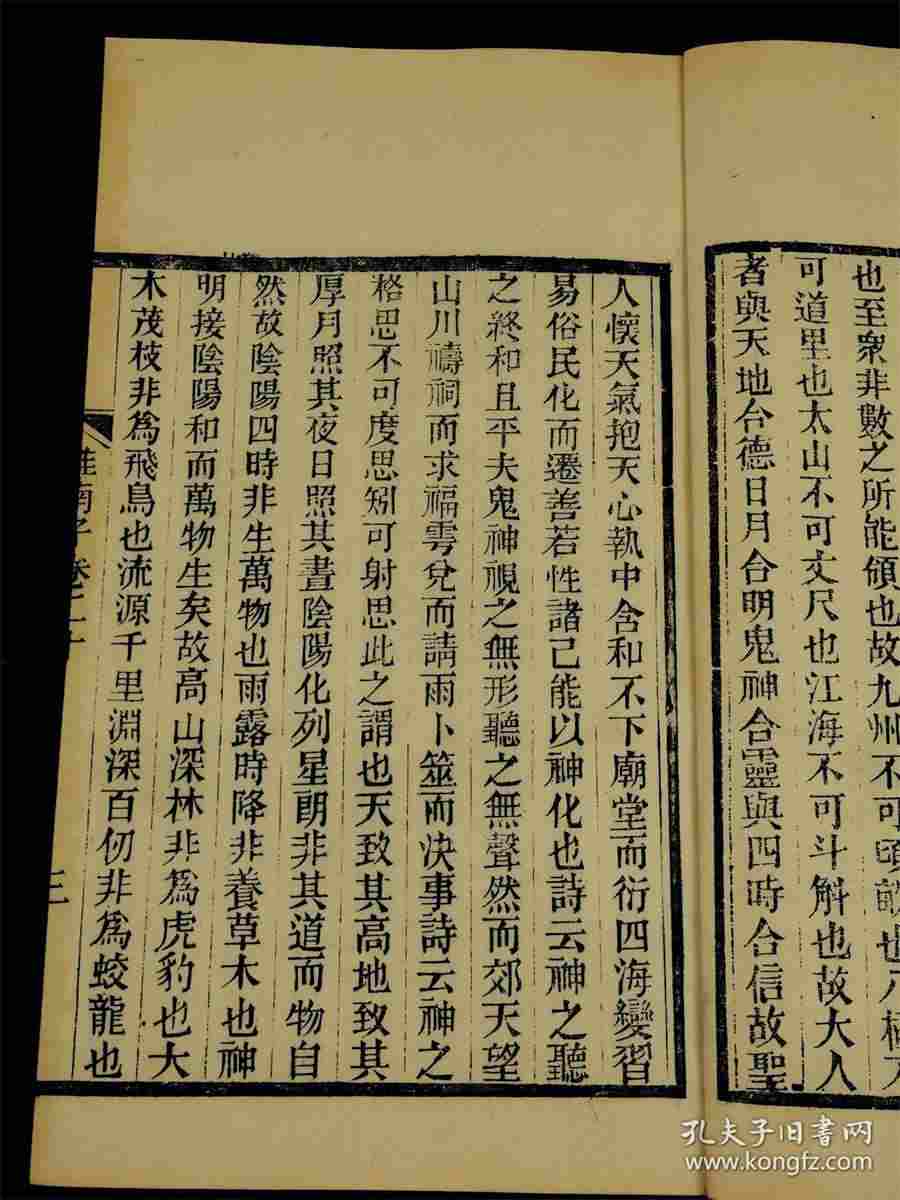 也至衆非數之所能領也故九州不可頃畝也八極不
可道里也太山不可丈尺也江海不可斗斛也故大人
者與天地合德日月合明鬼神合靈與四時合信故聖
人懷天氣抱天心執中含和不下廟堂而衍四海變習
易俗民化而遷善若性諸己能以神化也詩云神之聽
之終和且平夫鬼神視之無形聽之無聲然而郊天望
山川禱祠而求福雩兌而請雨卜筮而決事詩云神之
格思不可度思矧可射思此之謂也天致其高地致其
厚月照其夜日照其晝陰陽化列星朗非其道而物自
然故陰陽四時非生萬物也雨露時降非養草木也神
明接陰陽和而萬物生矣故高山深林非爲虎豹也大
木茂枝非爲飛鳥也流源千里淵深百仞非爲蛟龍也
淮南子 卷二十
三
孔夫子旧书网
www.kongfz.com